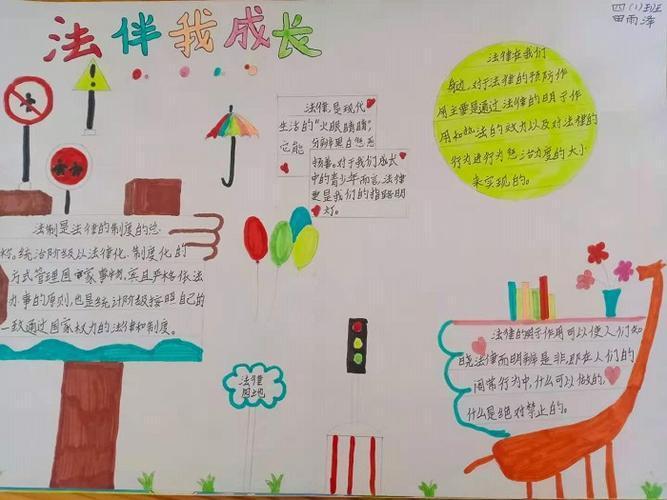 法伴我成长
四(1)班
田雨泽
法律是现代
生活的“火眼睛睛”,
它能分辨黑白惩恶
扬善。对于我们成长
中的青少年而言,法律
更是我们的指路明
灯。
法律在我们
身边,对于法律的预防作
用主要是通过法律的明示作
用和执法的效力以及对法律的
行为进行为惩治力度的大小
来实现的。
法制是法律的制度的总
称。统治阶级以法律化、制度化的
方式管理国家事务,并且严格依法
办事的原则,也是统计阶级按照自己的
一致通过国家权力的法律和制度。
法律
园地
法律的明示作用可以使人们知
晓法律而明辨是非,即在人们的
日常行为中,什么可以做的,
什么是绝对禁止的。